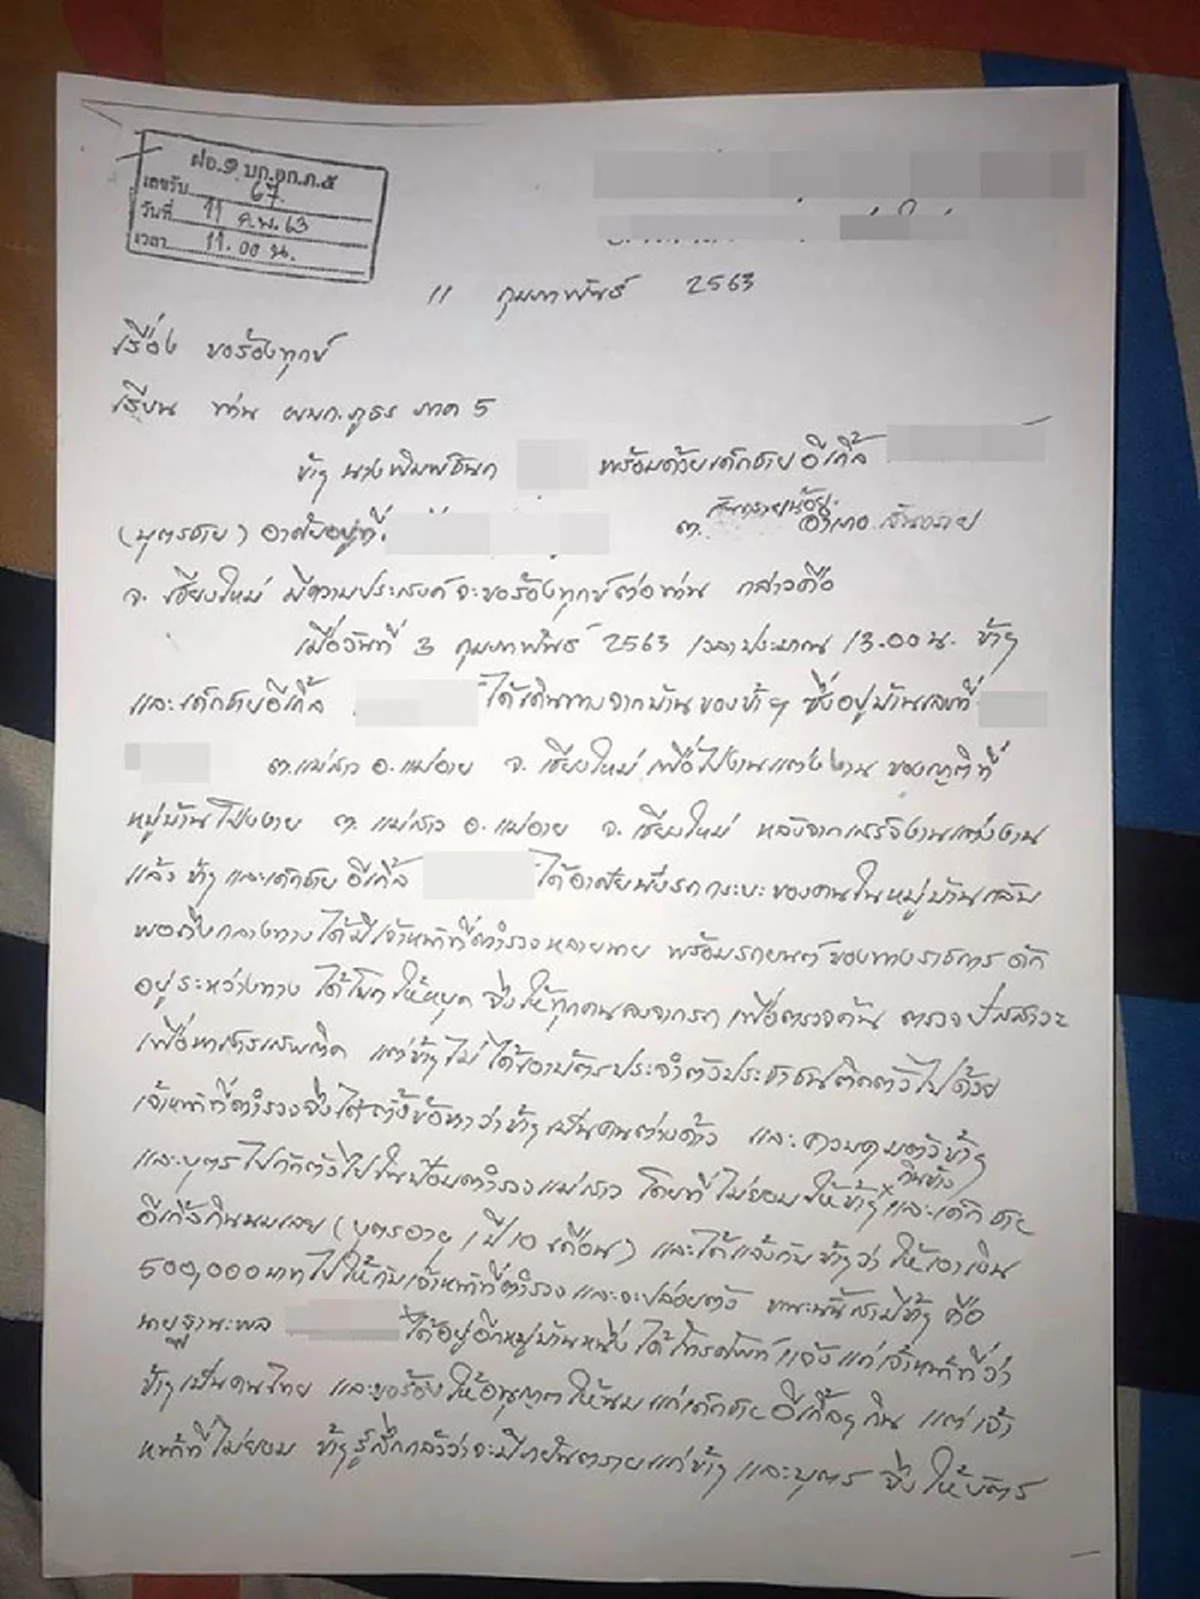 ฝอ.๑ บก.อก.ภ.๕
เลขรับ 67
วันที่ 11 ก.พ. 63
เวลา 11.00 น.
11 กุมภาพันธ์ 2563
เรื่อง ขอร้องทุกข์
เรียน ท่าน ผบก.ภูธร ภาค 5
ข้าฯ นางพิมพ์ชนก พร้อมด้วยเด็กชาย อีเกิ้ล
(บุตรชาย) อาศัยอยู่ที่ ต. สันทรายน้อย อำเภอ สันทราย
จ. เชียงใหม่ มีความประสงค์จะขอร้องทุกข์ต่อท่าน กล่าวคือ
เมื่อวันที่ 3 กุมภาพันธ์ 2563 เวลาประมาณ 13.00 น. ข้าฯ
และเด็กชายอีเกิ้ล ได้เดินทางจากบ้านของข้าฯ ซึ่งอยู่บ้านเลขที่
ต.แม่สาว อ.แม่อาย จ.เชียงใหม่ เพื่อไปงานแต่งงาน ของญาติที่
หมู่บ้านโป่งงาย ต. แม่สาว อ. แม่อาย จ. เชียงใหม่ หลังจากเสร็จงานแต่งงาน
แล้ว ข้าฯ และเด็กชาย อีเกิ้ล ได้อาศัยนั่งรถกระบะของคนในหมู่บ้านกลับ
พอถึงกลางทางได้มีเจ้าหน้าที่ตำรวจหลายนาย พร้อมรถยนต์ของทางราชการ ดัก
อยู่ระหว่างทาง ได้โบกให้หยุด จึงให้ทุกคนลงจากรถ เพื่อตรวจค้น ตรวจปัสสาวะ
เพื่อหาสารเสพติด แต่ข้าฯ ไม่ได้เอาบัตรประจำตัวประชาชนติดตัวไปด้วย
เจ้าหน้าที่ตำรวจจึงได้ตั้งข้อหาว่าข้าฯ เป็นคนต่างด้าว และควบคุมตัวข้าฯ
และบุตรไปกักตัวไว้ในป้อมตำรวจแม่สาว โดยที่ไม่ยอมให้ข้าฯ กินข้าว และเด็กชาย
อีเกิ้ลกินนมเลย (บุตรอายุ 1 ปี 10 เดือน) และได้แจ้งกับข้าฯ ว่า ให้เอาเงิน
500,000 บาทไปให้กับเจ้าหน้าที่ตำรวจและจะปล่อยตัว ขณะนั้นสามีข้าฯ คือ
นายฐานะพล ได้อยู่อีกหมู่บ้านหนึ่งได้โทรศัพท์ แจ้งแก่เจ้าหน้าที่ว่า
ข้าฯ เป็นคนไทย และขอร้องให้อนุญาตให้นมแก่เด็กชาย อีเกิ้ลฯ กิน แต่ เจ้า
หน้าที่ไม่ยอม ข้าฯ รู้สึกกลัวว่าจะมีภยันตรายแก่ข้าฯ และบุตร จึงให้บัตร